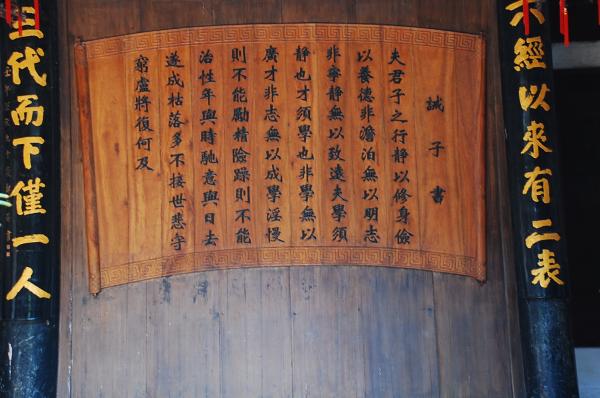 六經以來有二表
誡子書
夫君子之行靜以修身儉
以養德非澹泊無以明志
非寧靜無以致遠夫學須
靜也才須學也非學無以
廣才非志無以成學淫慢
則不能勵精險躁則不能
治性年與時馳意與日去
遂成枯落多不接世悲守
窮虛將復何及
三代而下僅一人